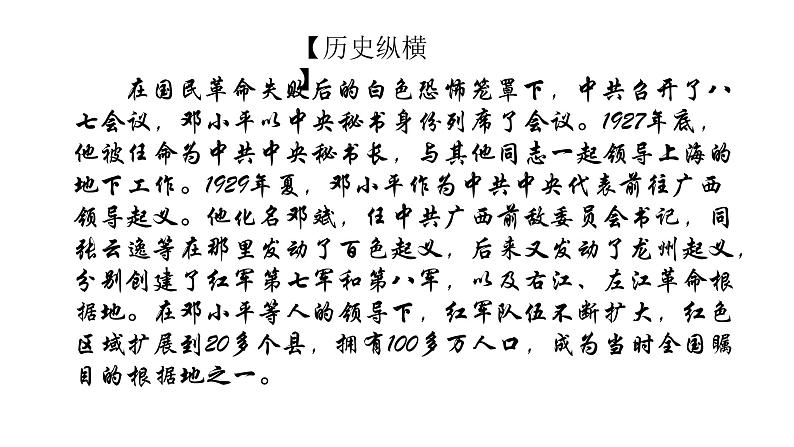 【历史纵横
】
在国民革命失败后的白色恐怖笼罩下，中共召开了八
七会议，邓小平以中央秘书身份列席了会议。1927年底，
他被任命为中共中央秘书长，与其他同志一起领导上海的
地下工作。1929年夏，邓小平作为中共中央代表前往广西
领导起义。他化名邓斌，任中共广西前敌委员会书记，同
张云逸等在那里发动了百色起义，后来又发动了龙州起义，
分别创建了红军第七军和第八军，以及右江、左江革命根
据地。在邓小平等人的领导下，红军队伍不断扩大，红色
区域扩展到20多个县，拥有100多万人口，成为当时全国瞩
目的根据地之一。